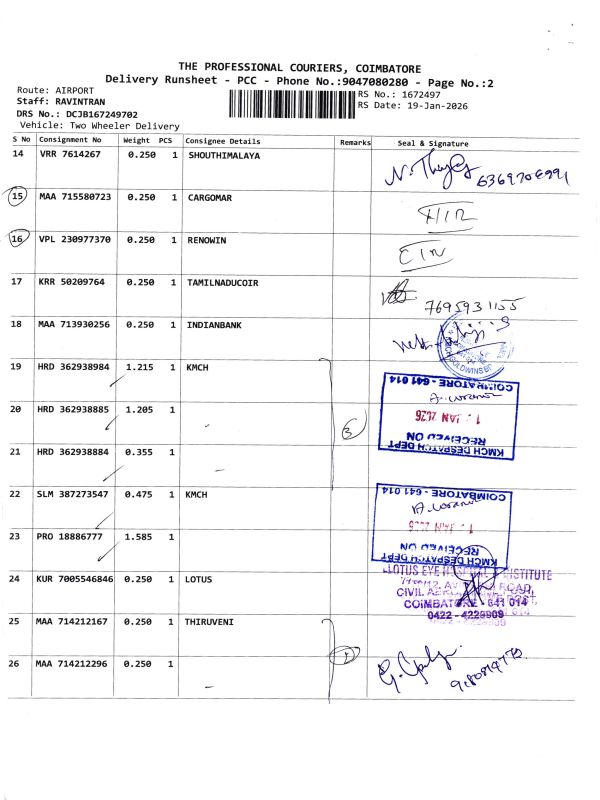 THE PROFESSIONAL COURIERS, COIMBATORE
Delivery Runsheet - PCC - Phone No.:9047080280 - Page No.:2
Route: AIRPORT
Staff: RAVINTRAN
DRS No.: DCJB167249702
Vehicle: Two Wheeler Delivery
RS No.: 1672497
RS Date: 19-Jan-2026
S No Consignment No Weight PCS Consignee Details Remarks Seal & Signature
14 VRR 7614267 0.250 1 SHOUTHIMALAYA
15 MAA 715580723 0.250 1 CARGOMAR
16 VPL 230977370 0.250 1 RENOWIN
17 KRR 50209764 0.250 1 TAMILNADUCOIR 7695931155
18 MAA 713930256 0.250 1 INDIANBANK
19 HRD 362938984 1.215 1 KMCH
20 HRD 362938885 1.205 1
3
COIMBATORE - 641 014
JAN 2026
RECEIVED ON
KMCH DESPATCH DEPT
21 HRD 362938884 0.355 1
22 SLM 387273547 0.475 1 KMCH
COIMBATORE - 641 014
JAN 2026
RECEIVED ON
KMCH DESPATCH DEPT
23 PRO 18886777 1.585 1
24 KUR 7005546846 0.250 1 LOTUS
LOTUS EYE INSTITUTE
ROAD,
CIVIL
COIMBATORE - 641 014
0422 - 4229909
25 MAA 714212167 0.250 1 THIRUVENI
26 MAA 714212296 0.250 1